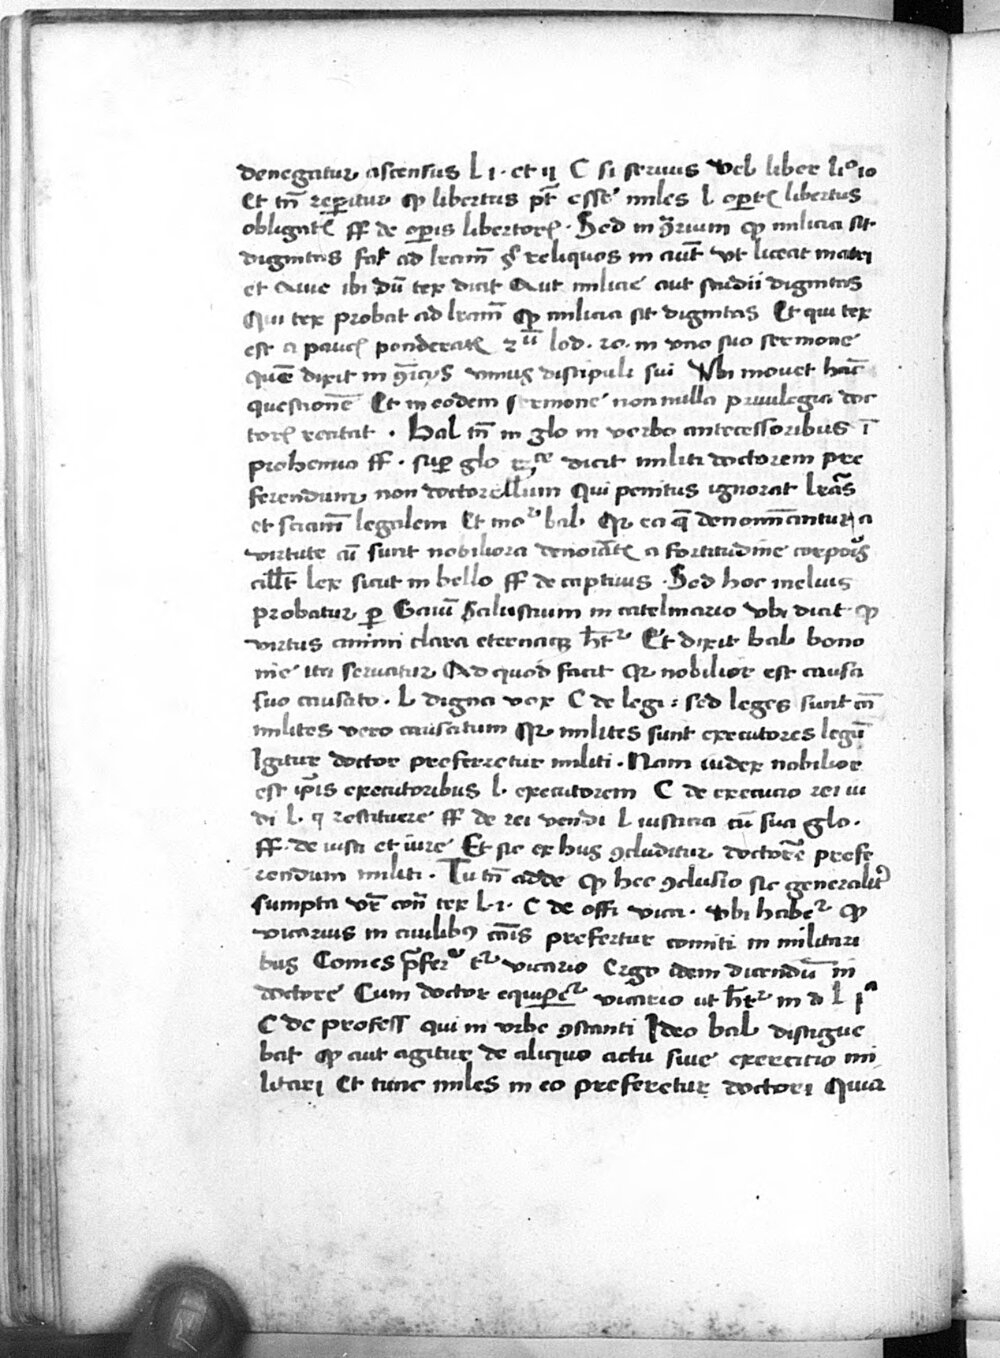 denegatur ascensus L i · et ij C si servus vel liber li° 10
Et tñ reperitur ꝙ libertus pt̄ esse miles l opert̄ libertus
obligat̄ ff de operis libertor̄ · Sed in ꝯ̄rium ꝙ milicia sit
dignitas fat̄ ad lr̄am § reliquos in aut̄ ut liceat matri
et Avie ibi dū tex dicit Aut milicie aut studii dignitas
Qui tex probat ad lr̄am ꝙ milicia sit dignitas Et qui tex
est a pauc̄ ponderat̄ lod · ro · in uno suo sermone
quē dixit in unius discipuli sui Ubi movet hāc
questionē Et in eodem sermone non nulla privilegia doc
tor̄ recitat · Bal tñ in glo in verbo antecessoribus ī
prohemio ff · sup glo dicit militi doctorem pre
ferendum non doctorellum Qui penitus ignorat lr̄as
et sciam̄ legalem Et mor̄ bal · Qr ea q̄ denominantur a
virtute cū sunt nobiliora denoīat̄ a fortitudine corporis
all̄t lex sicut in bello ff de captivis · Sed hoc melius
probatur ꝑ Gaiū Salustium in catelinario ubi dicit ꝙ
virtus animi clara eternaqꝫ h̄r Et dixit bal bono
mē ita servatur Ad quod facit Qr nobilior est causa
suo causato · L digna vox C de legi : sed leges sunt cā
milites vero causatum Qr milites sunt executores legū
Igitur doctor preferretur militi · Nam iudex nobilior
est ip̄is executoribus l · executorem C de execucio rei iu
di l · q restituere ff de rei vendi l iusticia cū sua glo ·
ff · de iusti et iure Et sic ex hiis ꝯcluditur doctorē prefe
rendum militi · Tu tñ adde ꝙ hec ꝯclusio sic generalit̄
sumpta ur̄ con̄ tex L · i · C de offi vica · ubi habet̄ ꝙ
vicarius in civilibꝰ cāis prefertur comiti in militari
bus Comes p̄fert̄ vicario Ergo idem dicendū in
doctore Cum doctor equiperet̄ vicario ut h̄r in d L iª
C de profess qui in urbe ꝯstanti Ideo bal distigue
bat ꝙ aut agitur de aliquo actu sive exercitio mi
litari Et tunc miles in eo preferetur doctori Quia